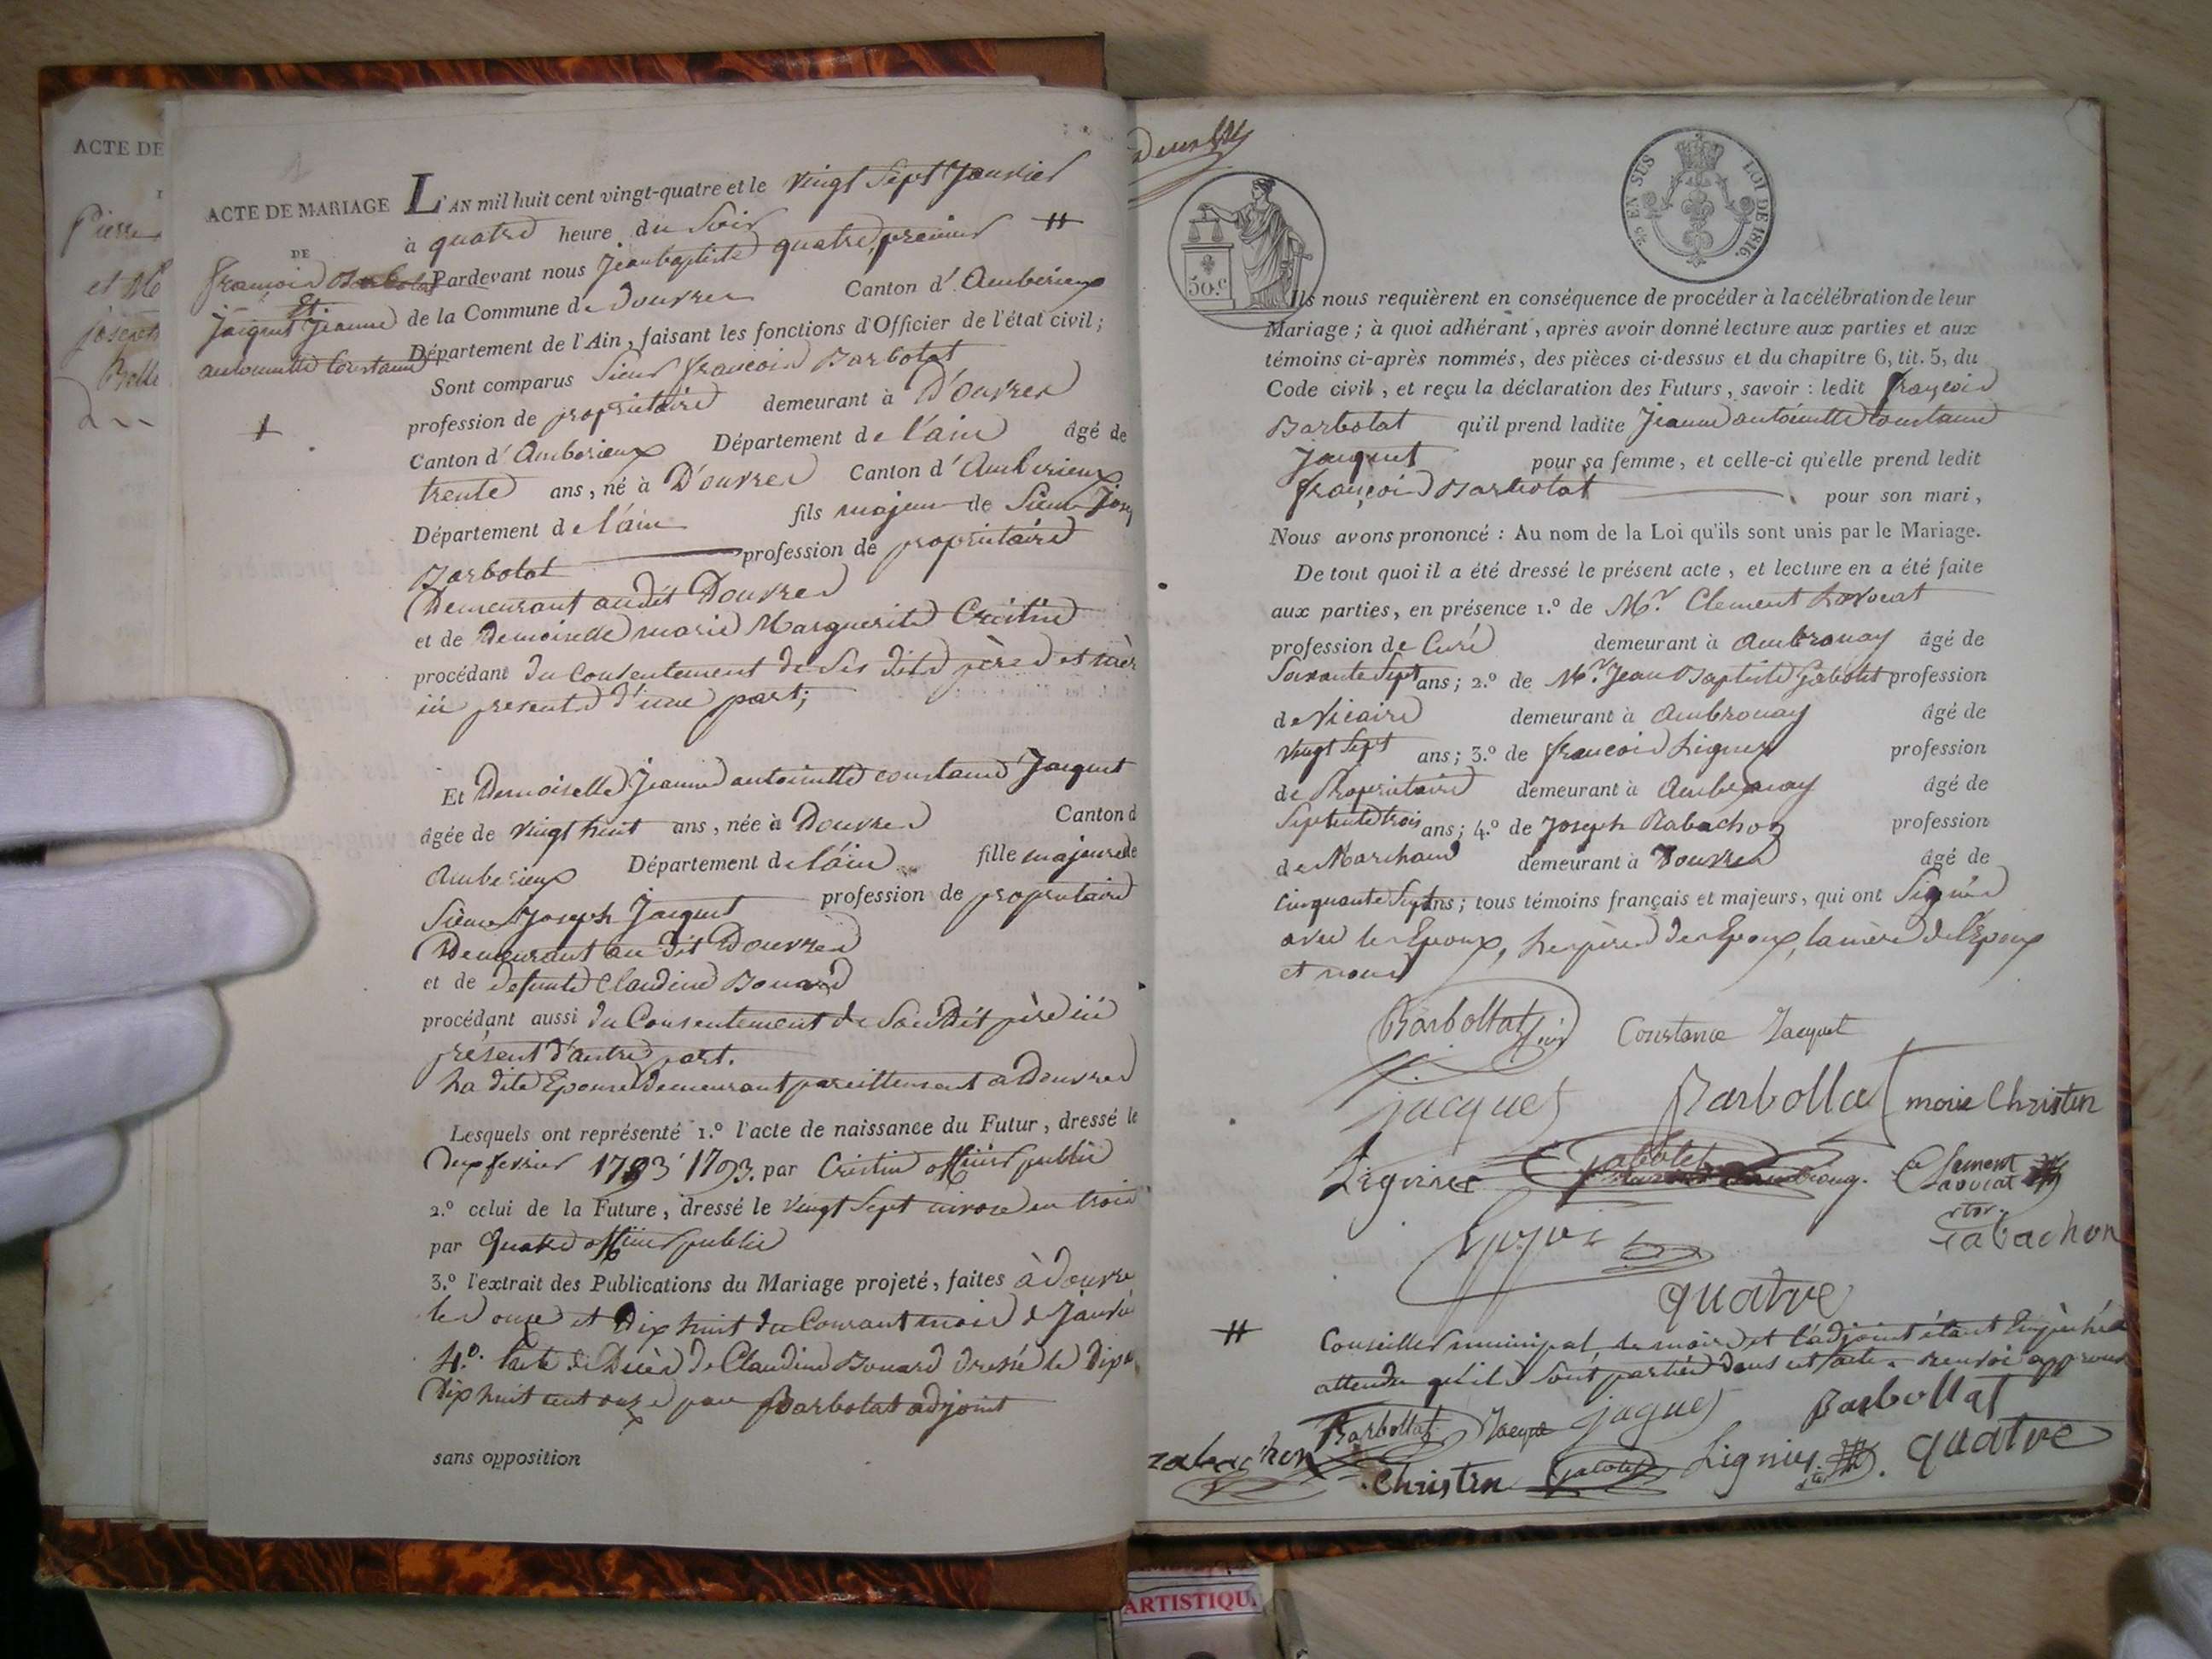 ACTE DE
Pierre
et
joseph
ACTE DE MARIAGE
DE
françois Barbolat
Et
Jacquet Jeanne
antoinette Constance
L'AN mil huit cent vingt-quatre et le vingt Sept Janvier
à quatre heure du Soir
Pardevant nous Jean baptiste quatre, premier #
de la Commune de Douvres Canton d'Amberieux
Département de l'Ain, faisant les fonctions d'Officier de l'état civil;
Sont comparus Sieur françois Barbolat
profession de propriétaire demeurant à D'ouvres
Canton d'Amberieux Département de l'ain âgé de
trente ans, né à D'ouvres Canton d'Amberieux
Département de l'ain fils majeur de Sieur Jos
Barbolat profession de propriétaire
Demeurant audit Douvres
et de Demoiselle marie Marguerite Cristin
procédant du Consentement de Ses dits père et mèr
ici présents d'une part;
Et Demoiselle Jeanne antoinette constance Jacquet
âgée de vingt huit ans, née à Douvres Canton d
Amberieux Département de l'ain fille majeure de
Sieur Joseph Jacquet profession de propriétaire
Demeurant au dit Douvres
et de defunte Claudine Bouard
procédant aussi du Consentement de Son dit père ici
présent d'autre part.
La dite Epouse demeurant pareillement a Douvres
Lesquels ont représenté 1.º l'acte de naissance du Futur, dressé le
Deux fevrier 1793 1793. par Cristin officier public
2.º celui de la Future, dressé le vingt Sept nivose an trois
par Quatre officier public
3.º l'extrait des Publications du Mariage projeté, faites à Douvre
les onze et Dix huit du Courant mois de Janvie
4.º l'acte de Décès de Claudine Bouard dressé le Dix
Dix huit cent onze par Barbolat adjoint
sans opposition
50.c
25 EN SUS LOI DE 1816.
Ils nous requièrent en conséquence de procéder à la célébration de leur
Mariage; à quoi adhérant, après avoir donné lecture aux parties et aux
témoins ci-après nommés, des pièces ci-dessus et du chapitre 6, tit. 5, du
Code civil, et reçu la déclaration des Futurs, savoir: ledit françois
Barbolat qu'il prend ladite Jeanne antoinette Constance
Jacquet pour sa femme, et celle-ci qu'elle prend ledit
françois Barbolat pour son mari,
Nous avons prononcé: Au nom de la Loi qu'ils sont unis par le Mariage.
De tout quoi il a été dressé le présent acte, et lecture en a été faite
aux parties, en présence 1.º de Mr. Clement Lavocat
profession de Curé demeurant à Ambronay âgé de
Soixante Sept ans; 2.º de Mr. Jean Baptiste Gabolet profession
de Vicaire demeurant à Ambronay âgé de
vingt Sept ans; 3.º de françois Lignier profession
de Propriétaire demeurant à Ambronay âgé de
Septente trois ans; 4.º de Joseph Rabachon profession
de Marchand demeurant à Douvres âgé de
cinquante Sept ans; tous témoins français et majeurs, qui ont Signés
avec les Epoux, les pères des Epoux, la mère de l'Epoux
et nous
Barbollat Constance Jacquet
jacquet Barbollat marie Christin
Lignier Gabolet Clement Lavocat
Rabachon
quatre
# Conseiller municipal le maire et l'adjoint étant Empèchés
attendu qu'ils Sont parties dans cet acte. renvoi approuvé
Barbollat Jacquet jaquet Barbollat
rabachon Christin Gabolet Lignier quatre
ARTISTIQU